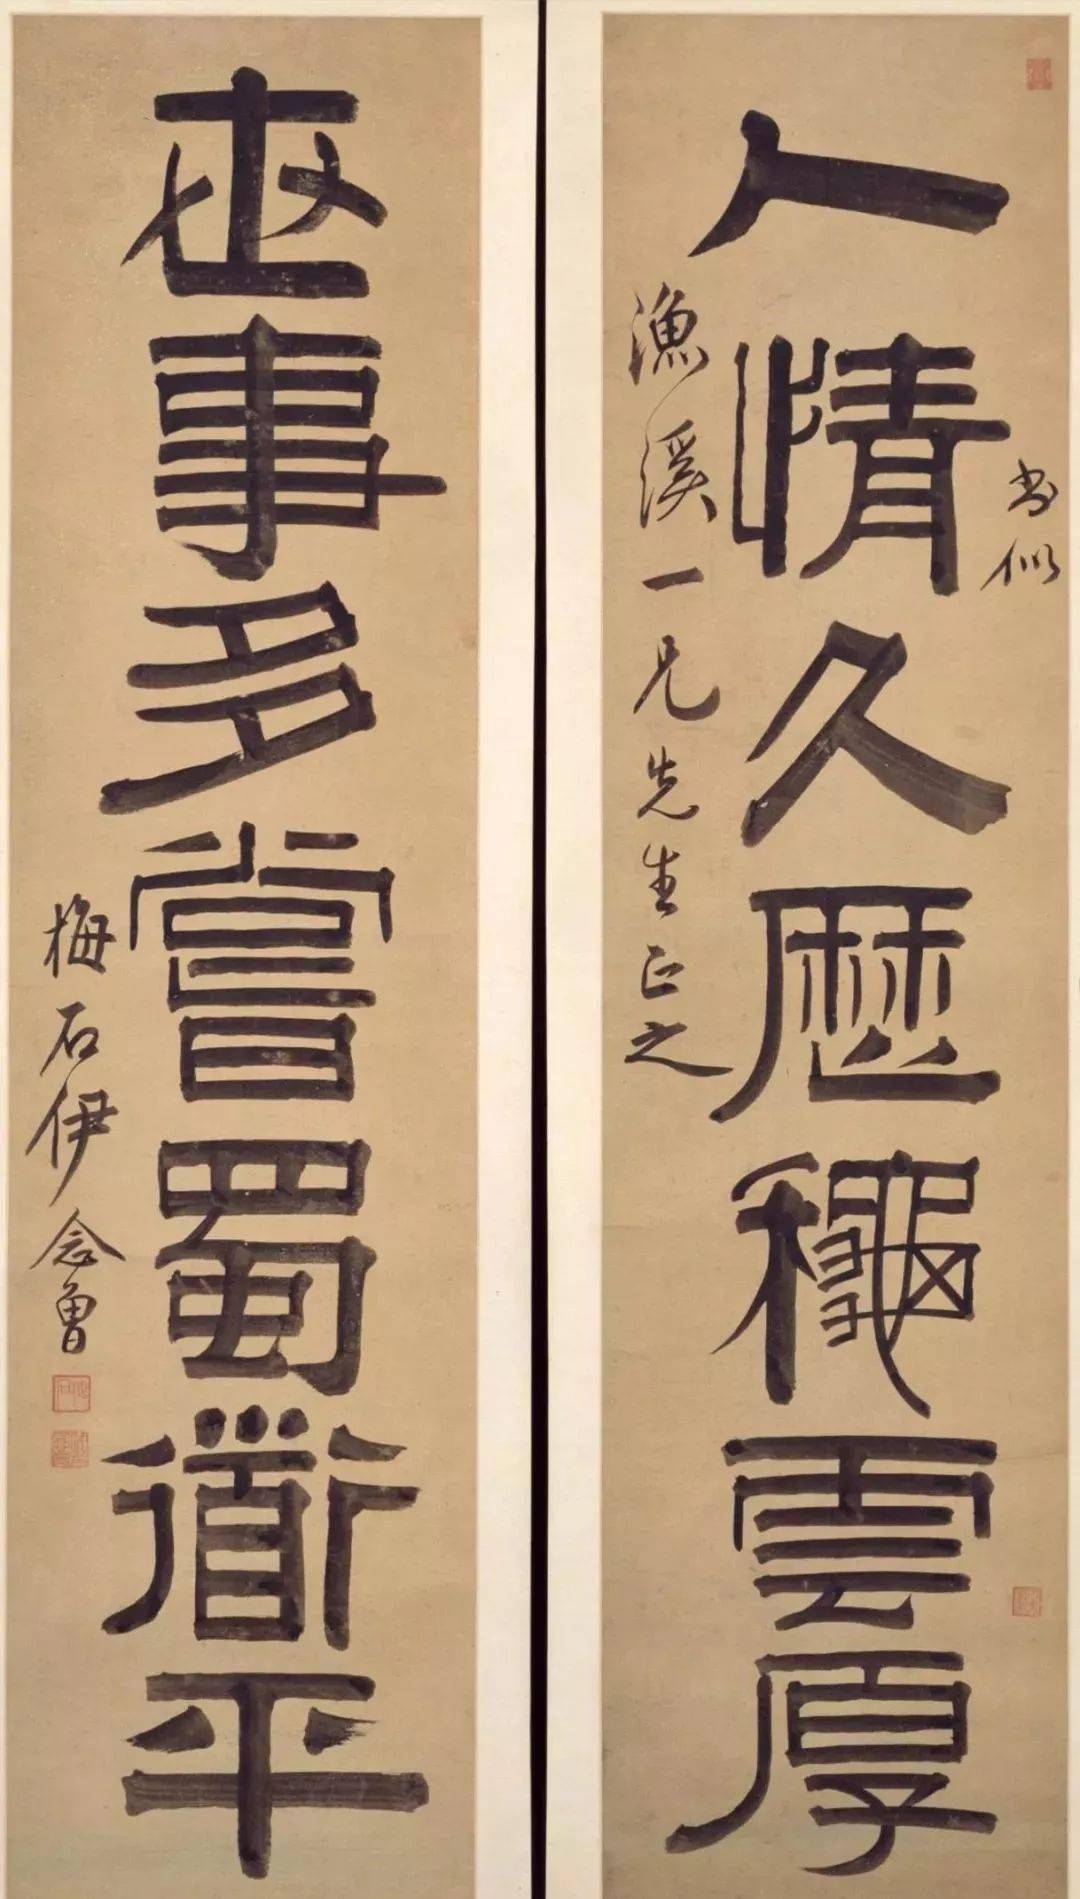 人情久歷龝雲厚
書似
漁溪一兄先生正之
世事多嘗蜀衜平
梅石伊念曾